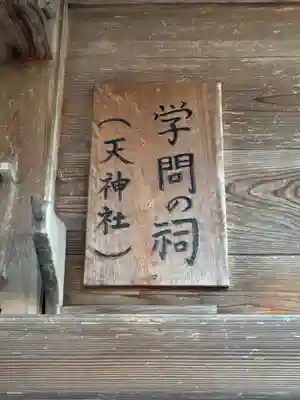 学問の祠
（天神社）